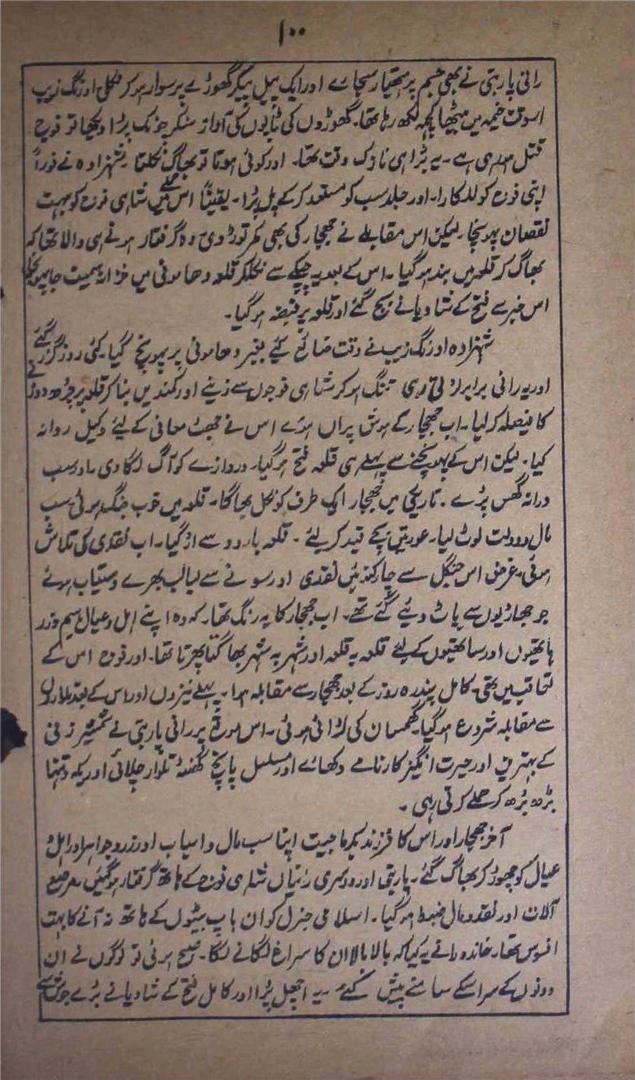 ۱۰۰
رانی پاربتی نے بھی جسم پر ہتھیار سجائے اور ایک پیل پیکر گھوڑے پر سوار ہو کر نکلی اورنگ زیب
اسوقت خیمہ میں بیٹھا کچھ لکھ رہا تھا۔ گھوڑوں کی ٹاپوں کی آواز سنکر چونک پڑا دیکھا تو فوج
قتل ہورہی ہے۔ یہ بڑا ہی نازک وقت تھا۔ اور کوئی ہوتا تو بھاگ نکلتا۔ شہزادہ نے فوراً
اپنی فوج کو للکارا۔ اور جلد سب کو مستعد کرکے پل پڑا۔ یقیناً اس حملے میں شاہی فوج کو بہت
نقصان پہونچا۔ لیکن اس مقابلے نے جھجار کی بھی کمر توڑ دی۔ وہ گرفتار ہونے ہی والا تھا کہ
بھاگ کر قلعہ میں بند ہو گیا۔ اس کے بعد یہ چپکے سے نکلکر قلعہ دھامونی میں خزانہ سمیت جا پہونچا
اس خبر سے فتح کے شادیانے بج گئے اور قلعہ پر قبضہ ہو گیا۔
شہزادہ اورنگ زیب نے وقت ضائع کیے بغیر دھامونی پر پہونچ گیا۔ کئی روز گزر گئے
اور یہ رانی برابر لڑتی رہی تنگ ہو کر شاہی فوجوں سے زینے اور کمندیں بنا کر قلعہ پر چڑھ دوڑنے
کا فیصلہ کرلیا۔ اب جھجار کے ہوش پراں ہوئے اس نے جھٹ معافی کے لیئے وکیل روانہ
کیا۔ لیکن اس کے پہونچنے سے پہلے ہی قلعہ فتح ہو گیا۔ دروازے کو آگ لگا دی۔ اور سب
درانہ گھس پڑے۔ تاریکی میں جھجار ایک طرف کو نکل بھاگا۔ قلعہ میں خوب جنگ ہوئی سب
مال و دولت لوٹ لیا۔ عورتیں بچے قید کرلیئے۔ قلعہ بارود سے اڑ گیا۔ اب نقدی کی تلاش
ہوئی۔ غرض اس جنگل سے چار کنوئیں نقدی اور سونے سے لبالب بھرے دستیاب ہوئے
جو جھاڑیوں سے پاٹ دیئے گئے تھے۔ اب جھجار کا یہ رنگ تھا۔ کہ وہ اپنے اہل و عیال سیم و زر
ہاتھیوں اور ساتھیوں کے لیئے قلعہ بہ قلعہ اور شہر بہ شہر بھاگتا پھرتا تھا۔ اور فوج اس کے
تعاقب میں تھی۔ کامل پندرہ روز کے بعد جھجار سے مقابلہ ہوا۔ پہلے نیزوں اور اس کے بعد تلواروں
سے مقابلہ شروع ہو گیا۔ گھمسان کی لڑائی ہوئی۔ اس موقع پر رانی پاربتی نے شمشیر زنی
کے بہترین اور حیرت انگیز کارنامے دکھائے اور مسلسل پانچ گھنٹہ تلوار چلائی اور یکہ و تنہا
بڑھ بڑھ کر حملے کرتی رہی۔
آخر جھجار اور اس کا فرزند بکرماجیت اپنا سب مال و اسباب اور زر و جواہر اور اہل و
عیال کو چھوڑ کر بھاگ گئے۔ پاربتی اور دوسری رانیاں شاہی فوج کے ہاتھ گرفتار ہو گئیں۔ مرصع
آلات اور نقد و مال ضبط ہو گیا۔ اسلامی جنرل کو ان باپ بیٹوں کے ہاتھ نہ آنے کا بہت
افسوس تھا۔ خاندوراں نے یہ کیا کہ بالا بالا ان کا سراغ لگانے لگا۔ صبح ہوئی تو لوگوں نے ان
دونوں کے سر اسکے سامنے پیش کئے۔ یہ اچھل پڑا اور کامل فتح کے شادیانے بڑے جوش سے